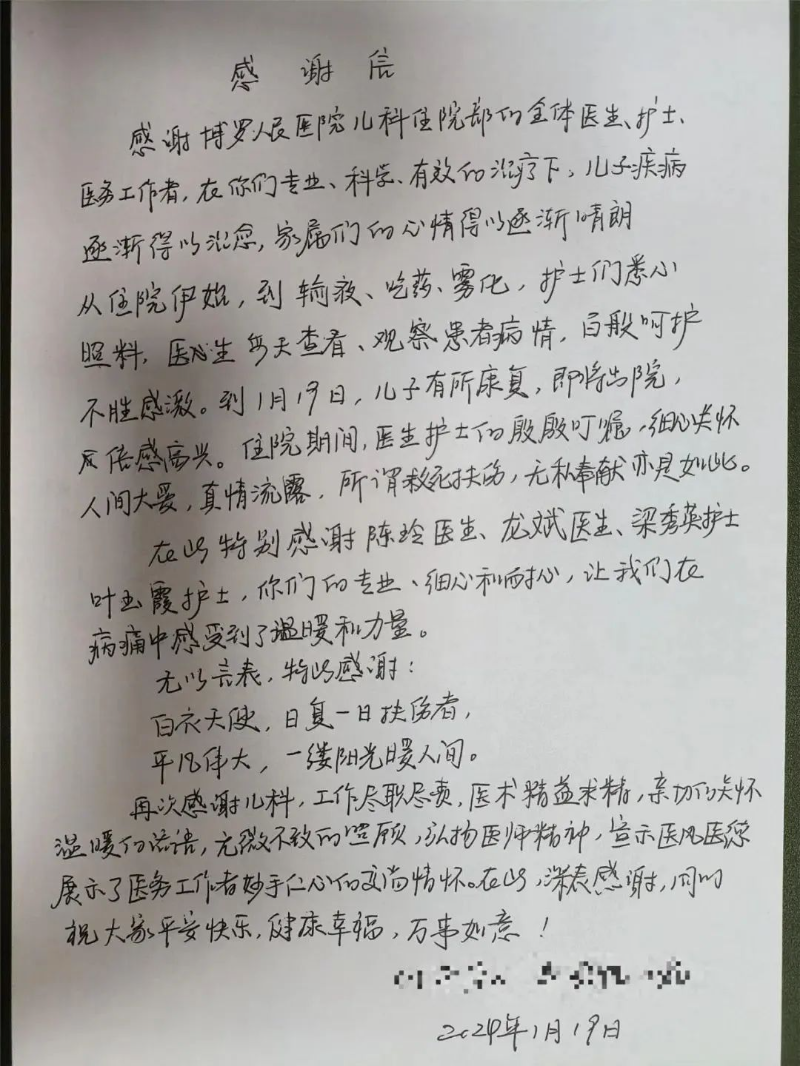 感谢信
感谢博罗人民医院儿科住院部的全体医生、护士、
医务工作者，在你们专业、科学、有效的治疗下，儿子疾病
逐渐得以治愈，家属们的心情得以逐渐晴朗
从住院伊始，到输液、吃药、雾化，护士们悉心
照料，医生每天查看、观察患者病情，百般呵护
不胜感激。到1月19日，儿子有所康复，即将出院，
倍感高兴。住院期间，医生护士们殷殷叮嘱，细心关怀
人间大爱，真情流露，所谓救死扶伤，无私奉献亦是如此。
在此特别感谢陈玲医生、龙斌医生、梁秀英护士
叶玉霞护士，你们的专业、细心和耐心，让我们在
病痛中感受到了温暖和力量。
无以言表，特此感谢：
白衣天使，日复一日扶伤者，
平凡伟大，一缕阳光暖人间。
再次感谢儿科，工作尽职尽责，医术精益求精，亲切的关怀
温暖的话语，无微不致的照顾，弘扬医师精神，宣示医风医德
展示了医务工作者妙手仁心的高尚情怀。在此，深表感谢，同时
祝大家平安快乐，健康幸福，万事如意！
2024年1月19日